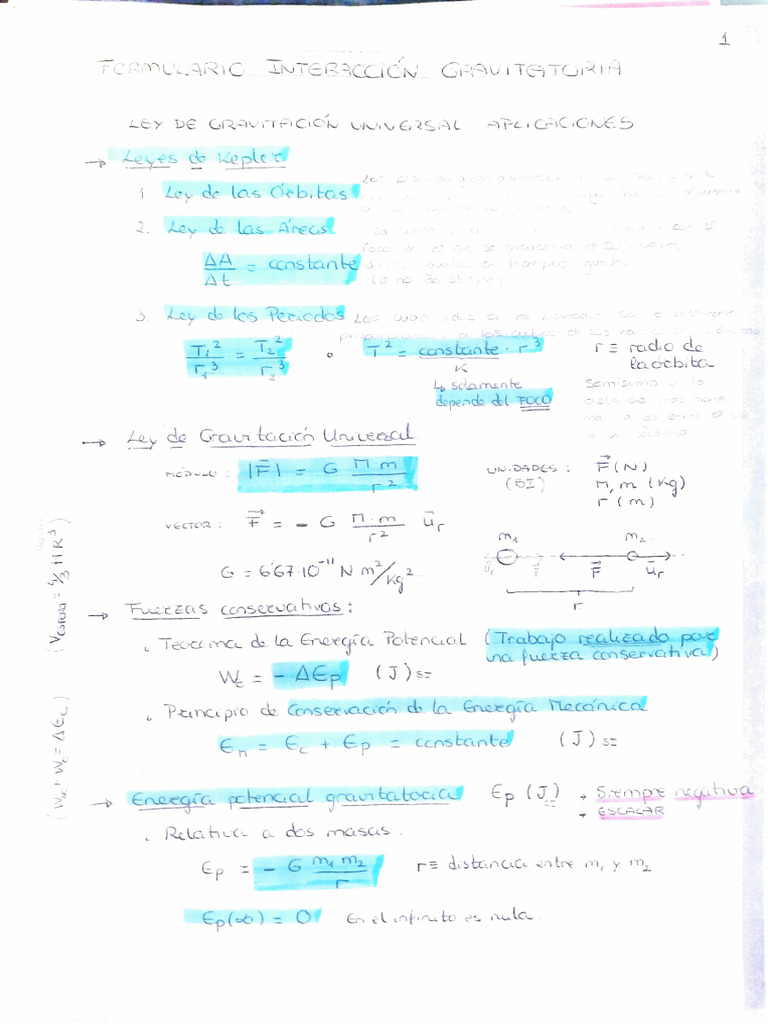 1
FORMULARIO INTERACCIÓN GRAVITATORIA
LEY DE GRAVITACIÓN UNIVERSAL APLICACIONES
→ Leyes de Kepler
1. Ley de las Órbitas
2. Ley de las Áreas
ΔA/Δt = constante
3. Ley de los Periodos
T₁²/r₁³ = T₂²/r₂³ o T² = constante · r³ r ≡ radio de la órbita
K
↳ solamente
depende del FOCO
→ Ley de Gravitación Universal
MÓDULO: |F⃗| = G M m / r² UNIDADES: F⃗ (N)
(SI) M, m (Kg)
r (m)
VECTOR: F⃗ = - G M·m / r² u⃗r
m₁ m₂
u⃗r F⃗ F⃗ u⃗r
r
G = 6'67·10⁻¹¹ N m²/Kg²
→ Fuerzas conservativas:
. Teorema de la Energía Potencial (Trabajo realizado por
una fuerza conservativa)
Wc = - ΔEp (J) SI
. Principio de Conservación de la Energía Mecánica
Em = Ec + Ep = constante (J) SI
→ Energía potencial gravitatoria Ep (J) → Siempre negativa
→ ESCALAR
. Relativa a dos masas.
Ep = - G m₁ m₂ / r r ≡ distancia entre m₁ y m₂
Ep(∞) = 0 En el infinito es nula.
(VESFERA = 4/3 π R³)